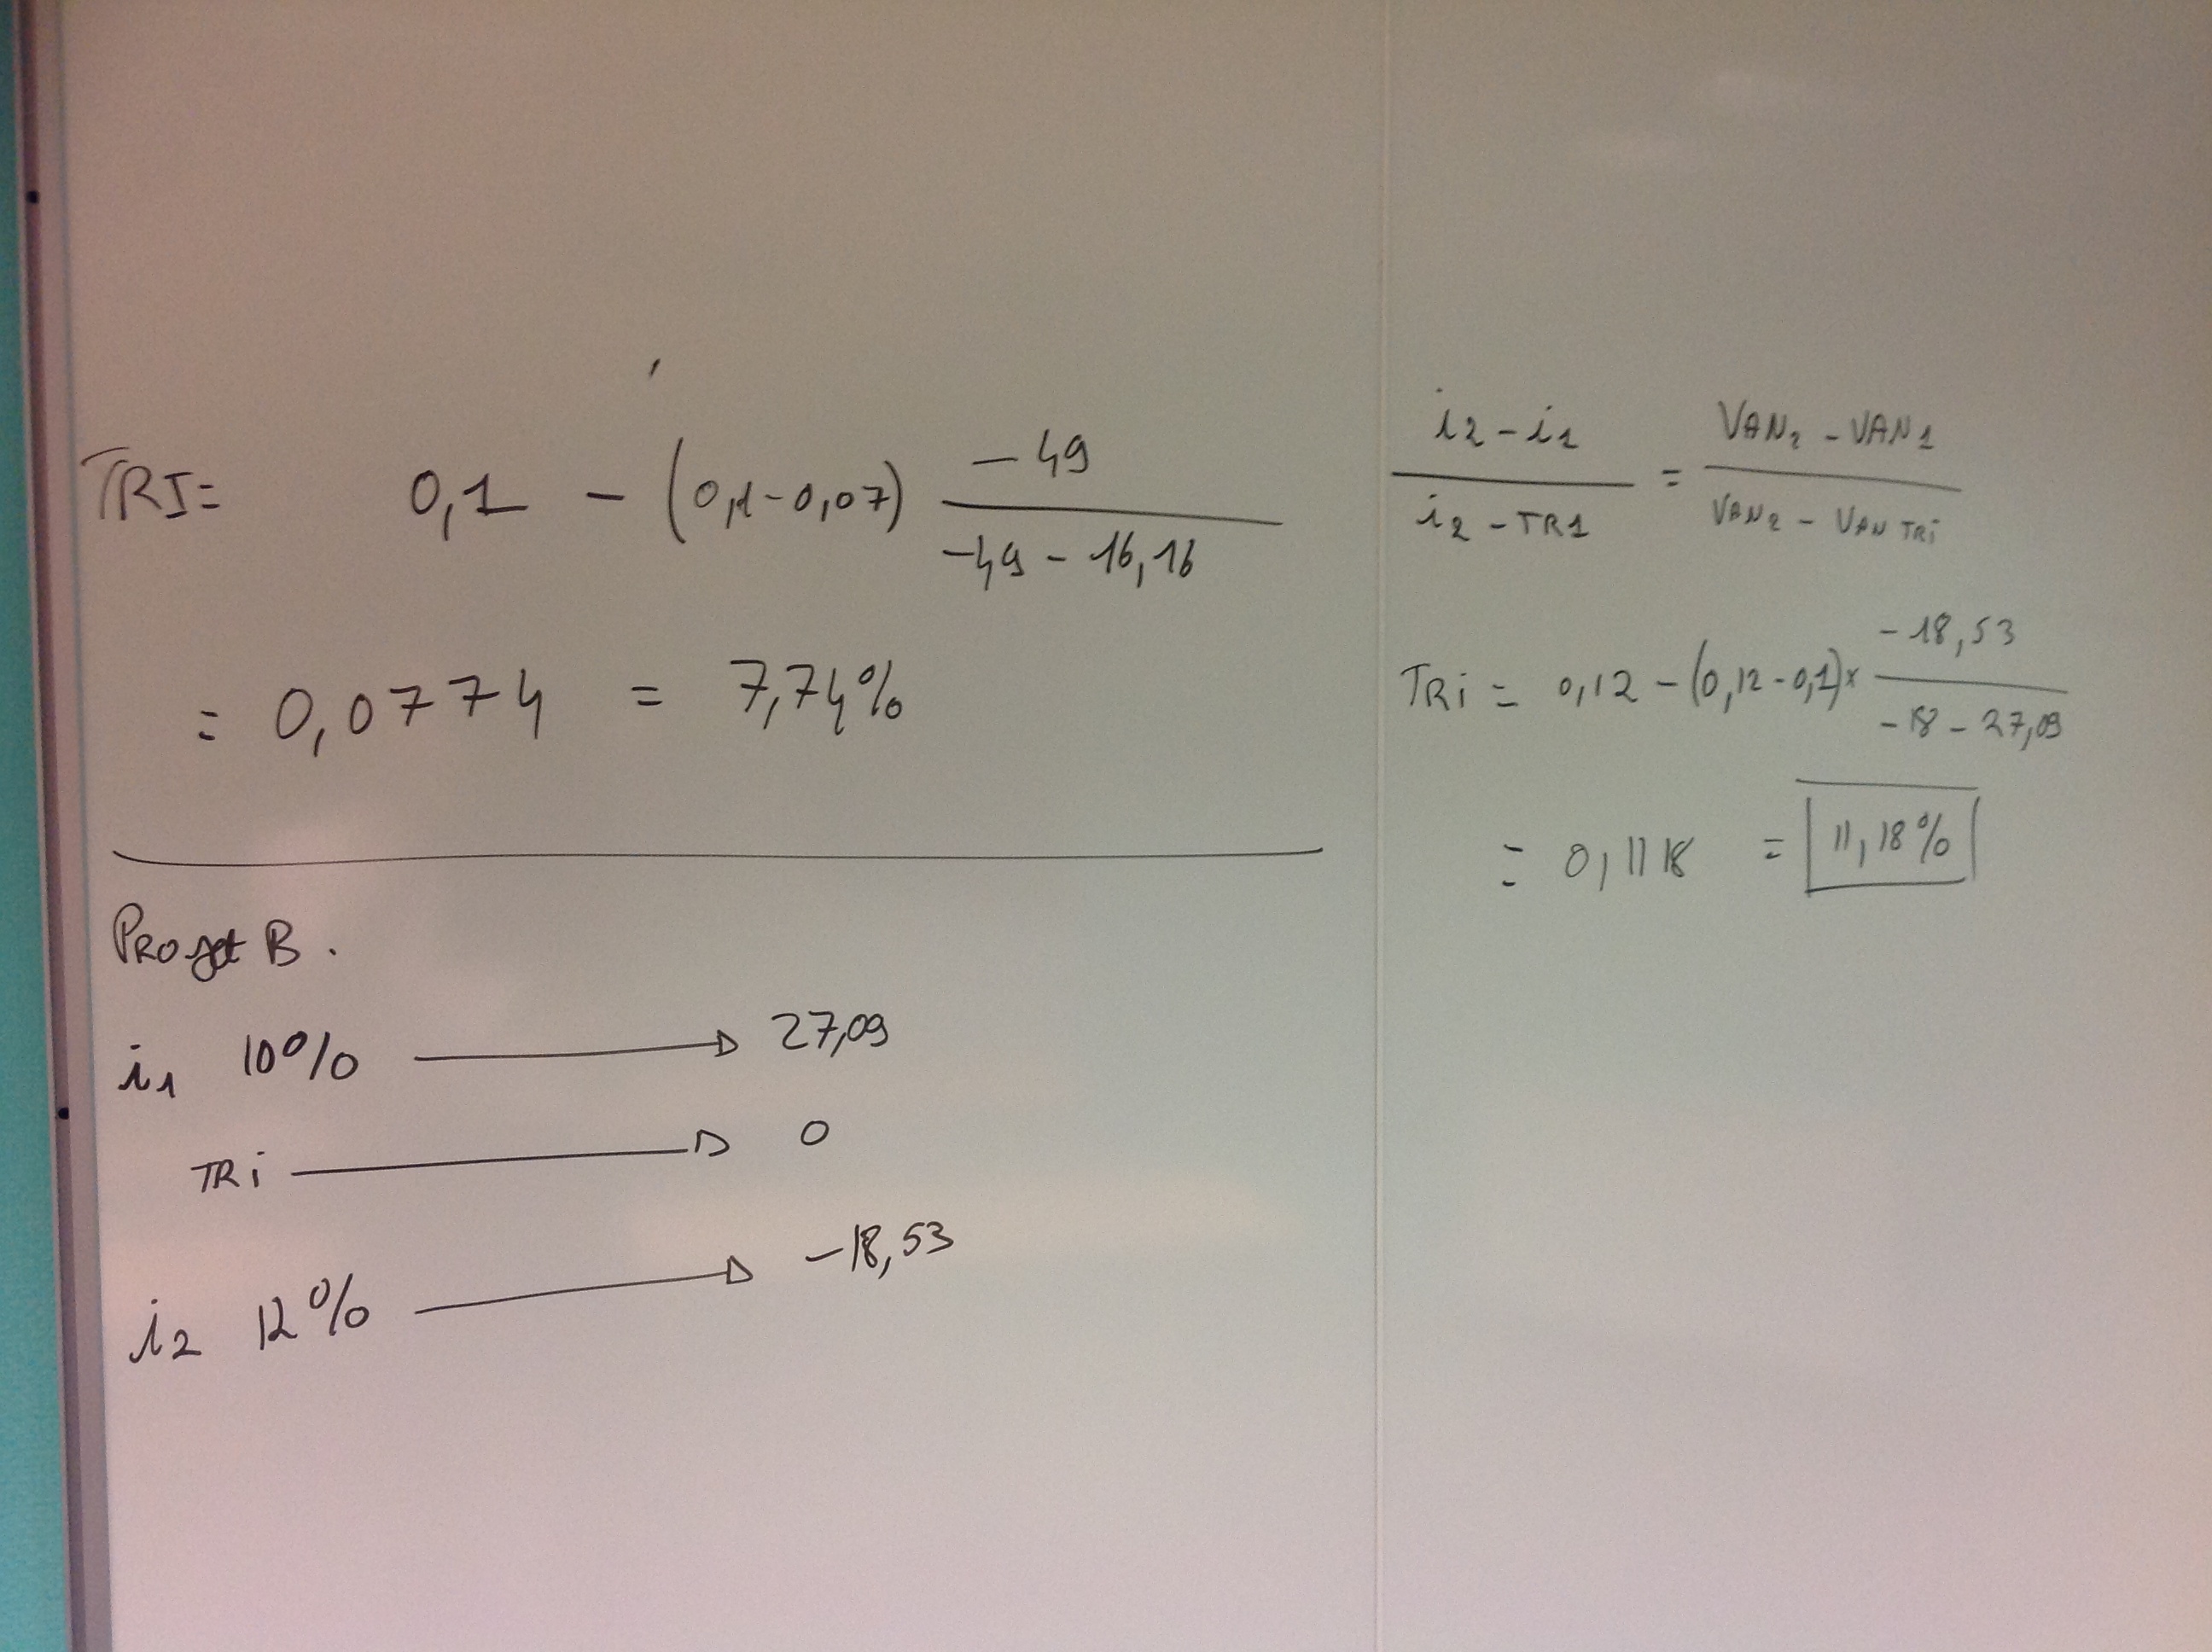 TRI= 0,1 - (0,1-0,07) -49
-49 - 16,16
= 0,0774 = 7,74%
Projet B.
i1 10% → 27,09
TRi → 0
i2 12% → -18,53
i2 - i1 = VAN2 - VAN1
i2 - TRI VAN2 - VAN TRi
TRi = 0,12 - (0,12-0,1)x -18,53
-18 - 27,09
= 0,1118 = 11,18%